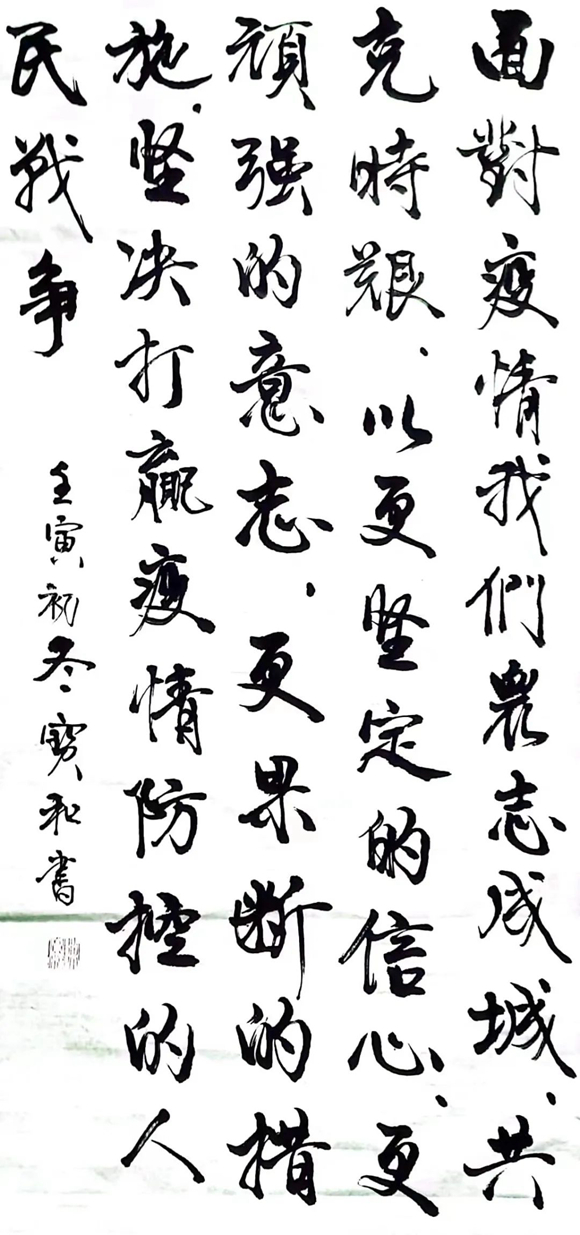 面對疫情我們眾志成城、共
克時艱、以更堅定的信心、更
頑强的意志、更果斷的措
施、堅决打贏疫情防控的人
民戰争
壬寅初冬寶和書